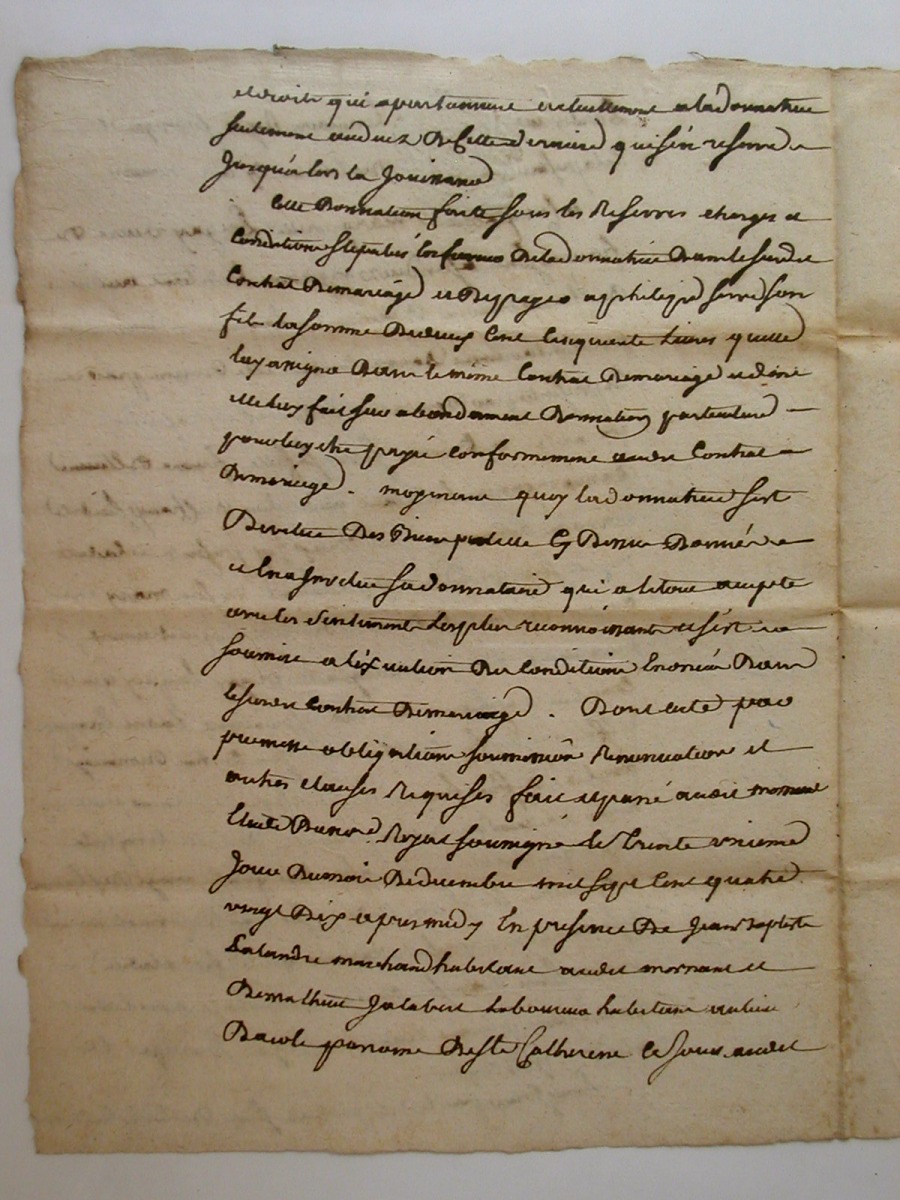 et droits qui apartiennent actuellement a la donnatrice
seulement au deces de cette derniere qui s'en reserve
jusqu'alors la jouissance
Cette donnation faite sous les reserves charges et
conditions stipulés en faveur de la donnatrice dans le susdit
contrat de mariage et de payer a philipe son
fils la somme de deux cent cinquante livres quelle
luy a assigné dans le même contrat de mariage
elle luy fait donnation particuliere
pour luy etre payé conformement audit contrat
de mariage. moyenant quoy la donnatrice s'est
devetue des biens par elle cy dessus donnés
et en a investu sa donnataire qui a le tout accepté
avec les sentiments les plus reconnoissants et s'est
soumise a l'execution des conditions enoncés dans
le susdit contrat de mariage. Dont acte par
promesse obligations soumission renunciation et
autres clauses requises fait et passé audit mornant
etude du no.re Royal soussigné le trente unieme
jour du mois de decembre mil sept cent quatre
vingt dix apres midy en presence de jean baptiste
Lalande marchand habitant audit mornant et
de mathieu jalabert laboureur habitant au lieu
paroisse de Ste Catherine le sous audit